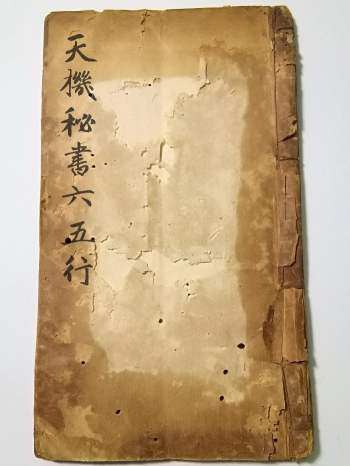 天機秘書六五行